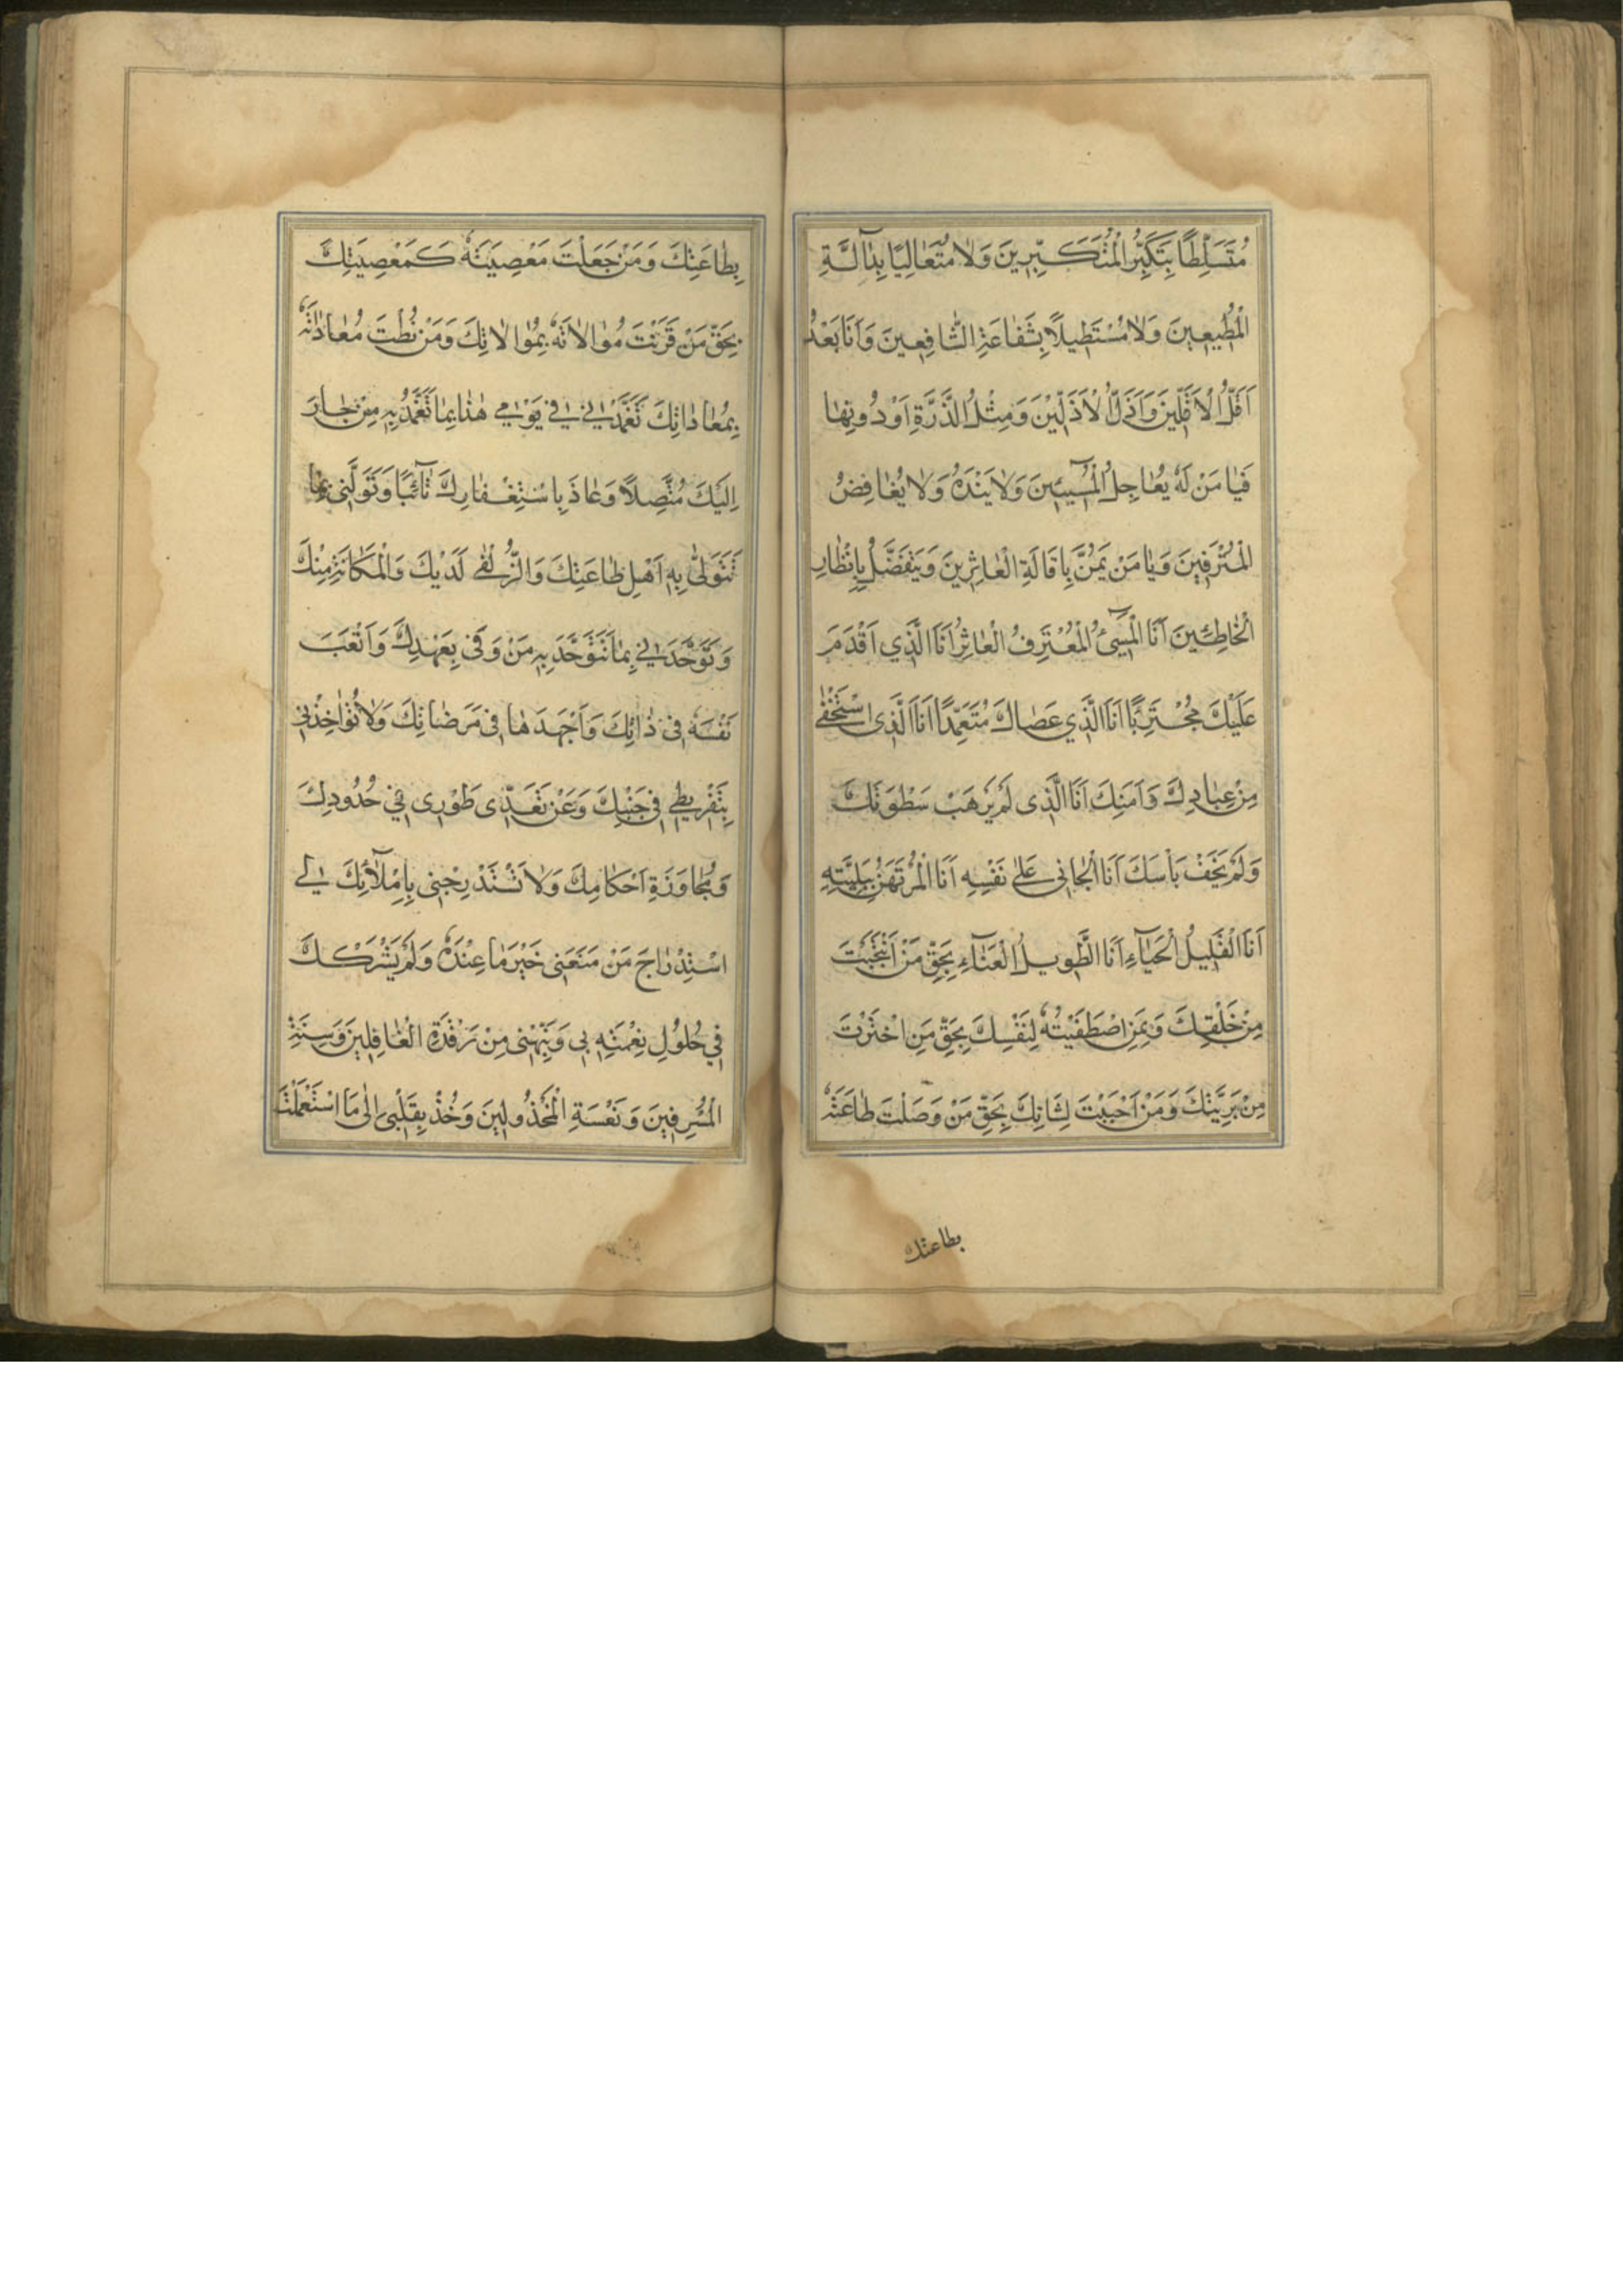 مُتَسَلِّطًا بِتَكَبُّرِ الْمُتَكَبِّرِينَ وَلَا مُتَعَالِيًا بِدَآلَّةِ
الْمُطِيعِينَ وَلَا مُسْتَطِيلًا بِشَفَاعَةِ الشَّافِعِينَ وَاَنَا بَعْدُ
اَقَلُّ الْاَقَلِّينَ وَاَذَلُّ الْاَذَلِّيْنَ وَمِثْلُ الذَّرَّةِ اَوْ دُونِهَا
فَيَا مَنْ لَمْ يُعَاجِلِ الْمُسِيئِينَ وَلَا يَنْدَهُ وَلَا يُغَافِصُ
الْمُتْرَفِينَ وَيَا مَنْ يَمُنُّ بِاِقَالَةِ الْعَاثِرِينَ وَيَتَفَضَّلُ بِاِنْظَارِ
الْخَاطِئِينَ اَنَا الْمُسِيئُ الْمُعْتَرِفُ الْعَاثِرُ اَنَا الَّذِي اَقْدَمَ
عَلَيْكَ مُجْتَرِئًا اَنَا الَّذِي عَصَاكَ مُتَعَمِّدًا اَنَا الَّذِى اسْتَخْفٰى
مِنْ عِبَادِكَ وَاَمِنَكَ اَنَا الَّذِى لَمْ يَرْهَبْ سَطْوَتَكَ
وَلَمْ يَخَفْ بَاْسَكَ اَنَا الْجَانِى عَلٰى نَفْسِهِ اَنَا الْمُرْتَهَنُ بِبَلِيَّتِهِ
اَنَا الْقَلِيلُ الْحَيَآءِ اَنَا الطَّوِيلُ الْعَنَآءِ بِحَقِّ مَنْ اَنْتَجَبْتَ
مِنْ خَلْقِكَ وَبِمَنِ اصْطَفَيْتَهُ لِنَفْسِكَ بِحَقِّ مَنِ اخْتَرْتَ
مِنْ بَرِيَّتِكَ وَمَنْ اَحْبَبْتَ لِشَانِكَ بِحَقِّ مَنْ وَصَلْتَ طَاعَتَهُ
بطاعتك
بِطَاعَتِكَ وَمَنْ جَعَلْتَ مَعْصِيَتَهُ كَمَعْصِيَتِكَ
بِحَقِّ مَنْ قَرَنْتَ مُوَالَاتَهُ بِمُوَالَاتِكَ وَمَنْ نُطْتَ مُعَادَاتَهُ
بِمُعَادَاتِكَ تَغَمَّدْنِي فِي يَوْمِي هٰذَا بِمَا تَتَغَمَّدُ بِهِ مَنْ جَارَ
اِلَيْكَ مُتَنَصِّلًا وَعَاذَ بِاسْتِغْفَارِكَ تَآئِبًا وَتَوَلَّنِى بِمَا
تَتَوَلّٰى بِهِ اَهْلَ طَاعَتِكَ وَالزُّلْفٰى لَدَيْكَ وَالْمَكَانَةِ مِنْكَ
وَتَوَحَّدْنِي بِمَا تَتَوَحَّدُ بِهِ مَنْ وَفَى بِعَهْدِكَ وَاَتْعَبَ
نَفْسَهُ فِى ذَاتِكَ وَاَجْهَدَهَا فِى مَرْضَاتِكَ وَلَا تُؤَاخِذْنِى
بِتَفْرِيطِي فِى جَنْبِكَ وَعَنْ تَعَدِّى طَوْرِى فِي حُدُودِكَ
وَمُجَاوَزَةِ اَحْكَامِكَ وَلَا تَسْتَدْرِجْنِى بِاِمْلَآئِكَ لِي
اسْتِدْرَاجَ مَنْ مَنَعَنِى خَيْرَ مَا عِنْدَهُ وَلَمْ يَشْرَكْكَ
فِي حُلُولِ نِعْمَتِهِ بِى وَنَبِّهْنِى مِنْ رَقْدَةِ الْغَافِلِينَ وَسِنَةِ
الْمُسْرِفِينَ وَنَعْسَةِ الْمَخْذُولِينَ وَخُذْ بِقَلْبِى اِلٰى مَا اسْتَعْمَلْتَ